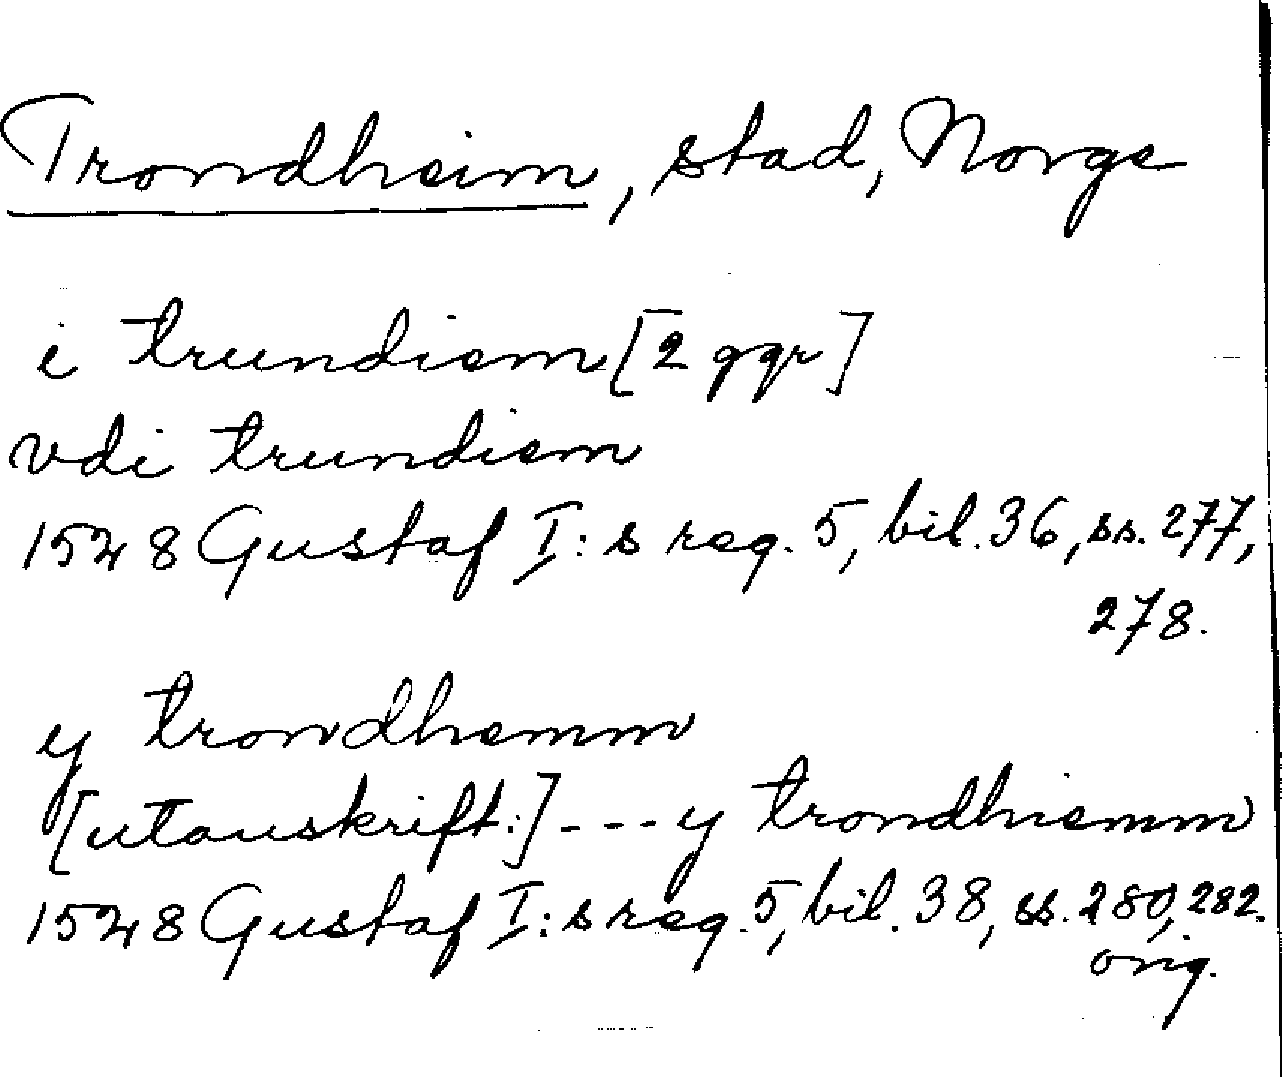 Trondheim, stad, Norge
i trundiem [2 ggr]
vdi trundiem
1528 Gustaf I:s reg. 5, bil. 36, ss. 277,
278.
y trondhemm
[utanskrift:] --- y trondhiemm
1528 Gustaf I:s reg. 5, bil. 38, ss. 280, 282.
orig.